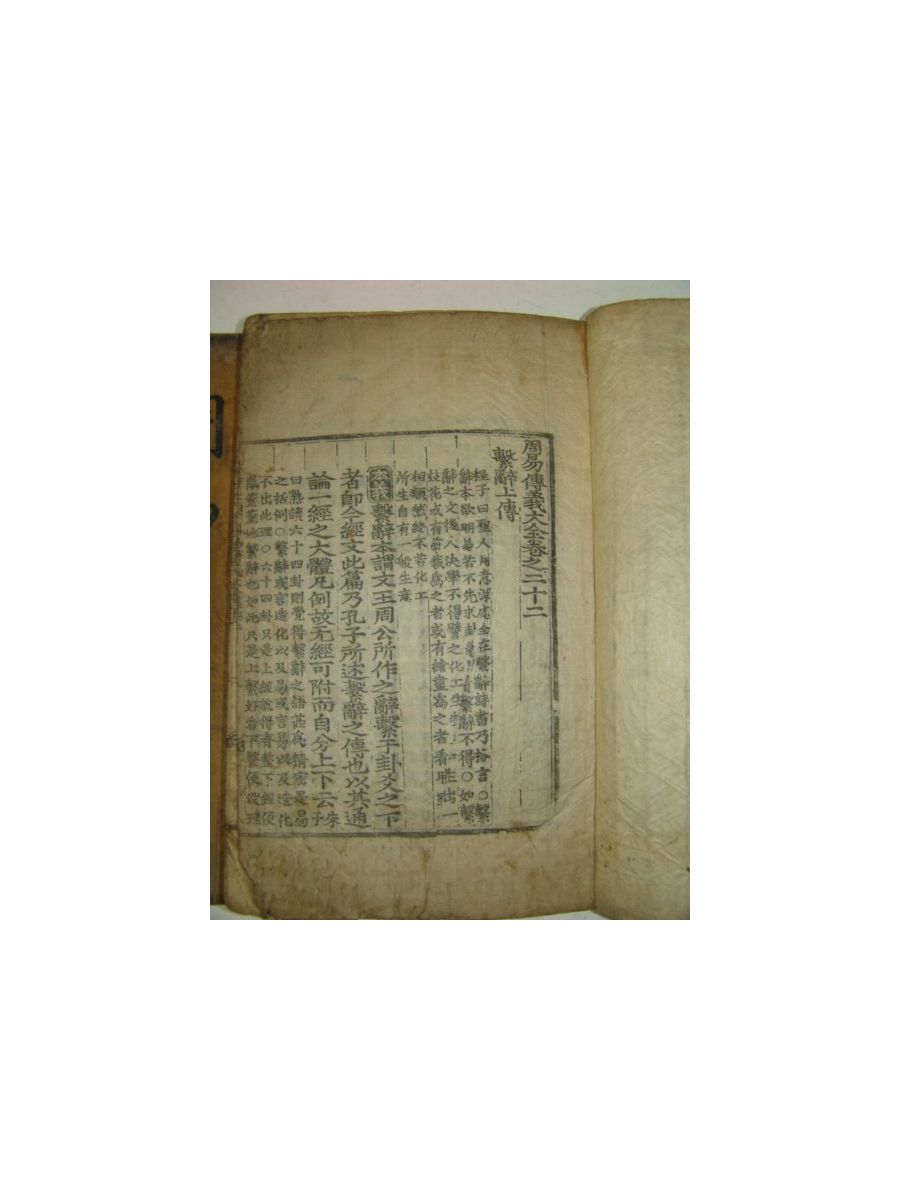 周易傳義大全卷之二十二
繫辭上傳
程子曰聖人用意深處全在繫辭詩書乃格言○繫
辭本欲明易若不先求卦義則看繫辭不得○如繫
辭之文後人決學不得譬之化工生物
枝花或有剪裁爲之者或有繪畫爲之者看時
相類然終不若化工
所生自有一般生意
本義繫辭本謂文王周公所作之辭繫于卦爻之下
者卽今經文此篇乃孔子所述繫辭之傳也以其通
論一經之大體凡例故无經可附而自分上下云朱子
曰熟讀六十四卦則覺得繫辭之語甚爲精密是易
之括例○繫辭或言造化以及易或言易以及造化
不出此理○六十四卦只是上經說得齊整下經便
繫辭也如此只是上繫好看下繫便沒理
周